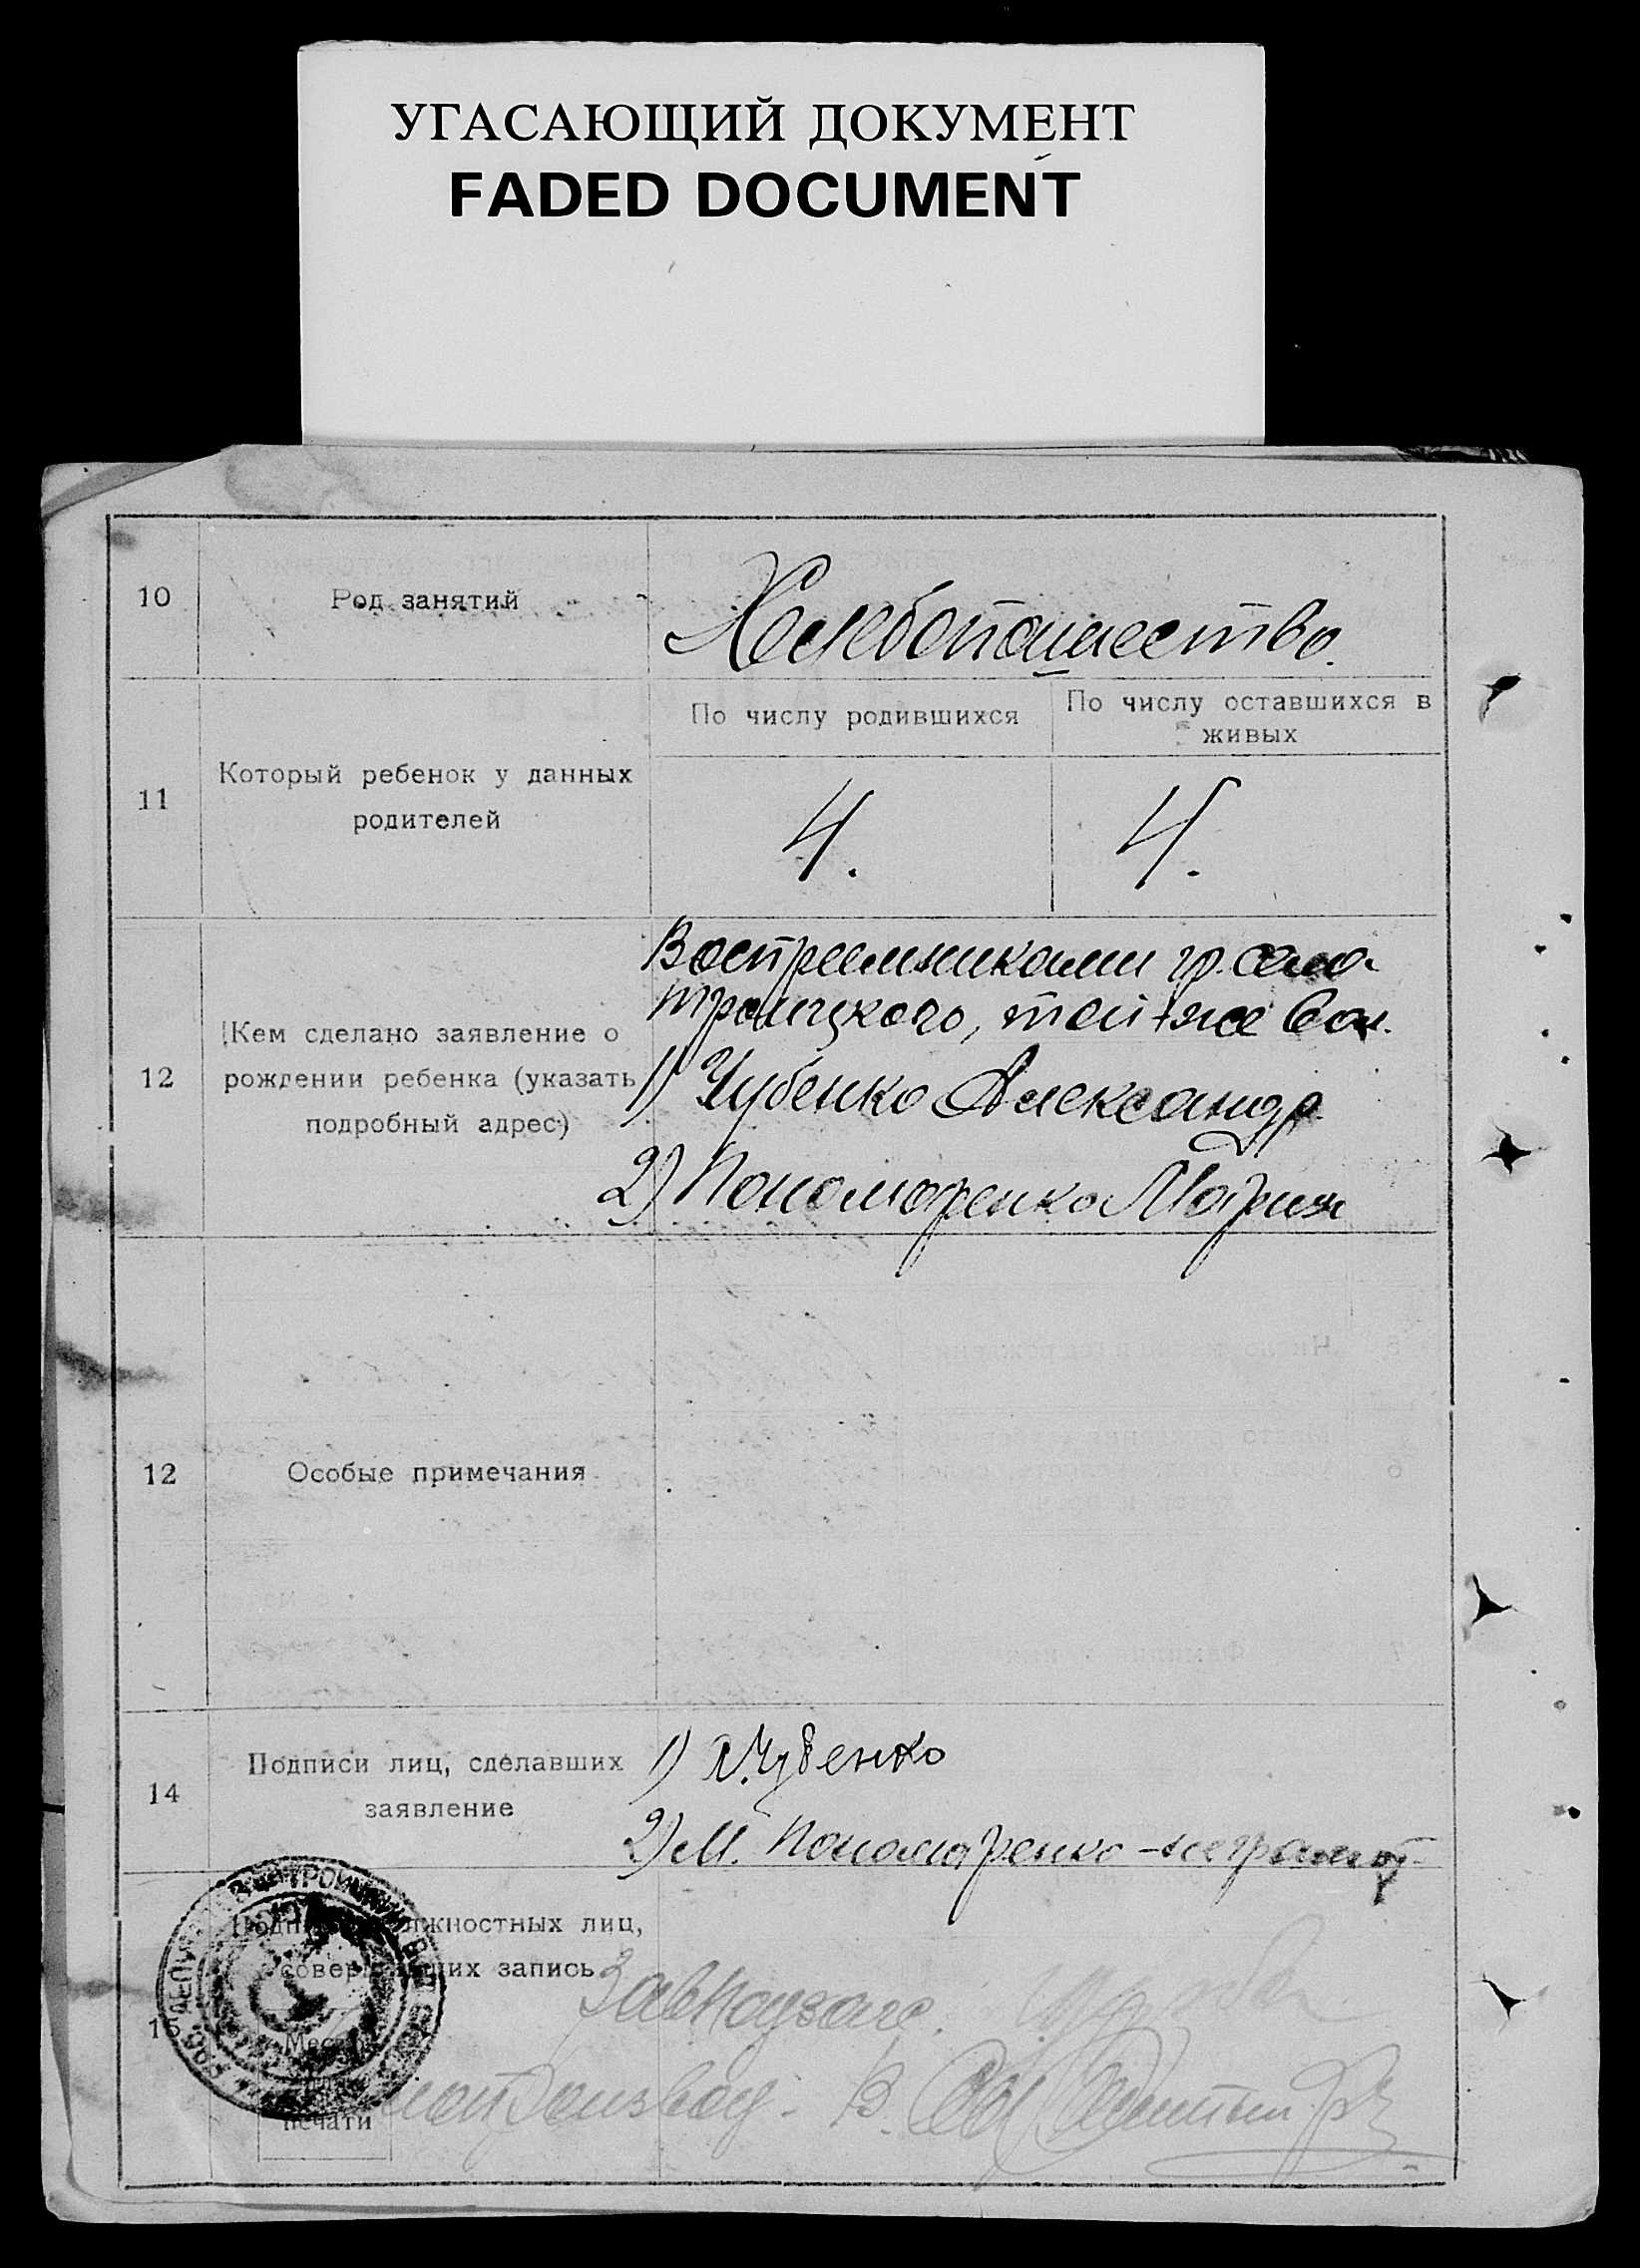 УГАСАЮЩИЙ ДОКУМЕНТ
FADED DOCUMENT
10
Род занятий
Хлебопашество.
11
Который ребенок у данных
родителей
По числу родившихся
По числу оставшихся в
живых
4.
4.
12
Кем сделано заявление о
рождении ребенка (указать
подробный адрес)
Восприемниками гр. села
Троицкого, той-же вол.
1) Чубенко Александр.
2) Пономаренко Мария
12
Особые примечания
14
Подписи лиц, сделавших
заявление
1) А. Чубенко
2) М. Пономаренко - неграмот.
15
должностных лиц,
запись
Завподзагс.
В.
печати